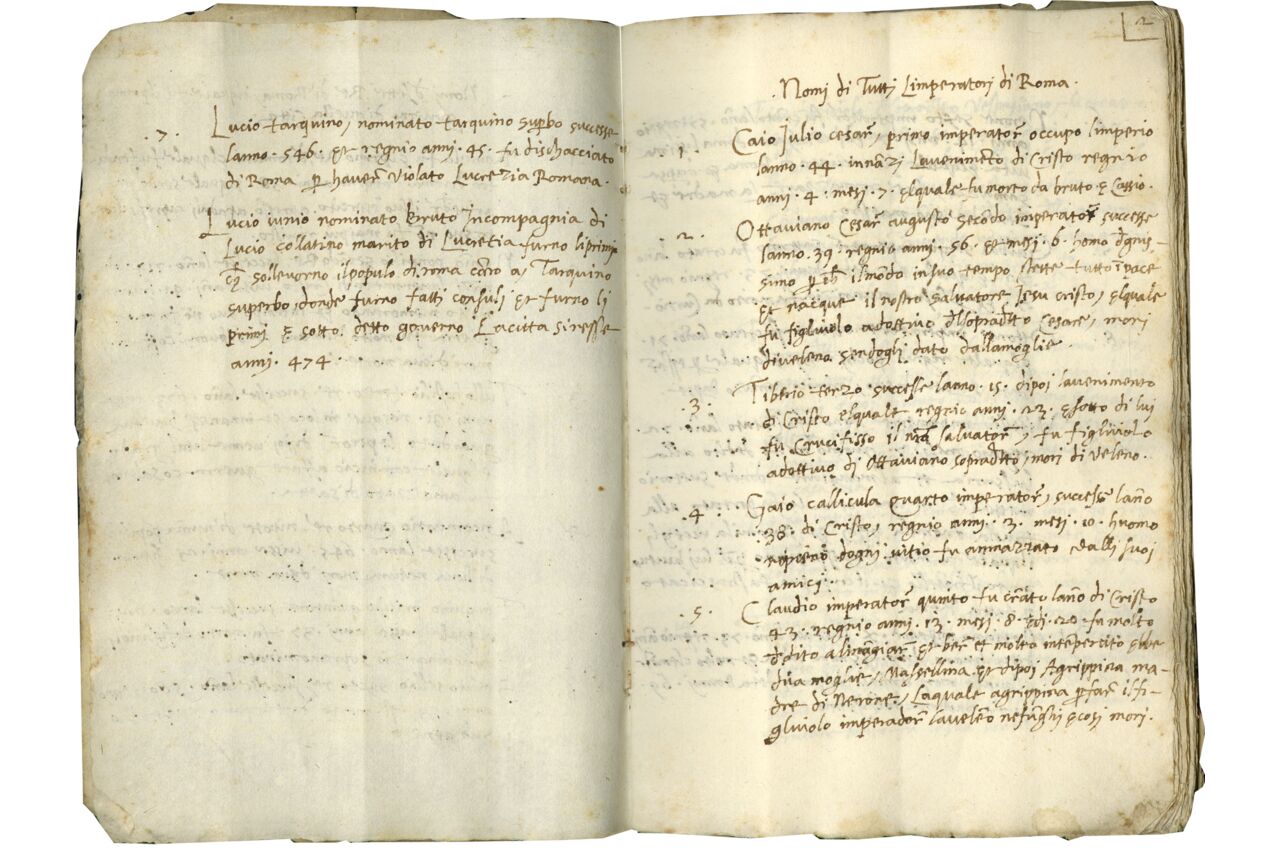 .7. Lucio tarquino, nominato tarquino superbo successe
lanno .546. et regnio anni .45. fu dischacciato
di Roma per haver violato Lucrezia Romana.
Lucio iunio nominato bruto Incompagnia di
Lucio collatino marito di Lucretia furno li primi
che sollevorno il populo di roma contro a, Tarquino
superbo, donde furno fatti consulj et furno li
primi e sotto detto governo La citta si resse
anni .474.
2
.Nomi di Tuttj Limperatorj di Roma.
.1. Caio Julio cesar, primo imperator occupo limperio
lanno .44. innanzi Lavenimento di Cristo regnio
anni .4. mesi .7. elquale fu morto da bruto e Cassio.
.2. Ottaviano Cesar augusto secondo imperator successe
lanno .39. regnio anni .56. et mesi .6. homo dignis-
simo per che il modo in suo tempo stette tutto in pace
et nacque il nostro salvatore Jesu cristo, elquale
fu figliuolo adottivo dell sopradetto cesare, mori
di veleno sendogli dato dalla moglie.
.3. Tiberio terzo successe lanno .15. dipoi lavenimento
di Cristo elquale regnio anni .23. e sotto di lui
fu Crucifisso il nostro salvator, fu figliuolo
adottivo di Ottaviano sopradetto, mori di veleno.
.4. Gaio callicula quarto imperator, successe lanno
.38. di Cristo, regnio anni .3. mesi .10. huomo
dogni vitio fu amazzato dalli suoi
amicj.
.5. Claudio imperator quinto fu creato lanno di Cristo
43. regnio anni .13. mesi .8. .20. fu molto
dedito al magiar, et ber et molto e
dua moglie, Massellina et dipoi Agrippina ma-
dre di Nerone, Laquale agrippina per far il fi-
gliuolo imperador laveleno ne funghi e cosi mori.